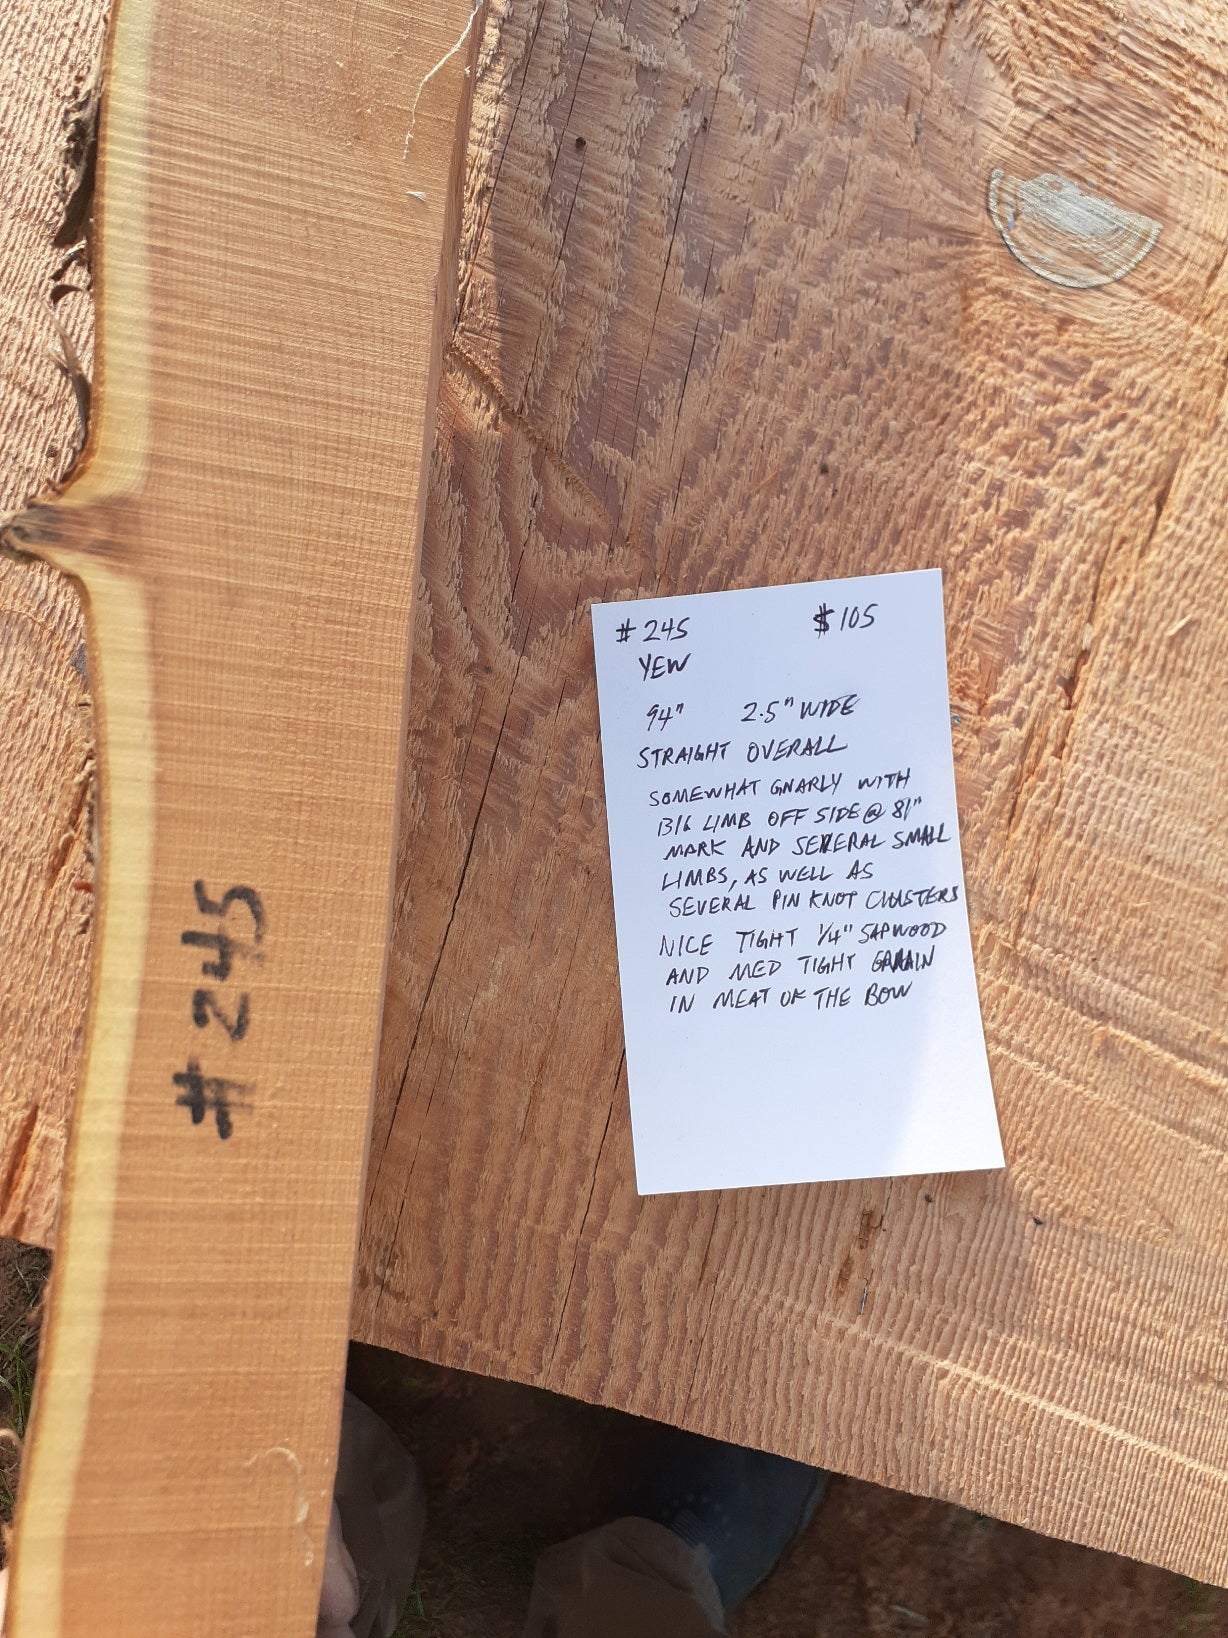 # 245 $ 105
YEW
94" 2.5" WIDE
STRAIGHT OVERALL
SOMEWHAT GNARLY WITH
BIG LIMB OFF SIDE @ 81"
MARK AND SEVERAL SMALL
LIMBS, AS WELL AS
SEVERAL PIN KNOT CLUSTERS
NICE TIGHT 1/4" SAPWOOD
AND MED TIGHT GRAIN
IN MEAT OF THE BOW
# 245